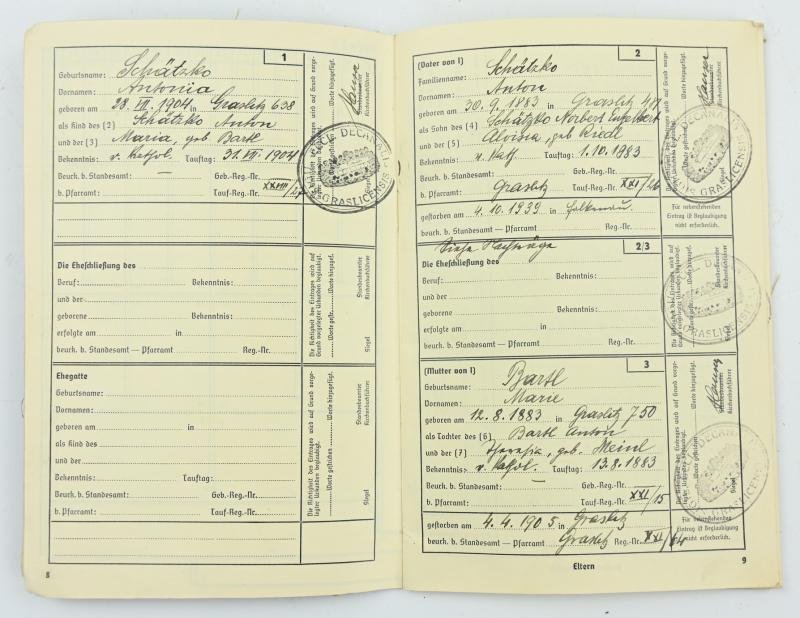 1
Geburtsname: Schätzko
Vornamen: Antonia
geboren am 28. VII. 1904 in Graslitz 638
als Kind des (2) Schätzko Anton
und der (3) Maria, geb Bartl
Bekenntnis: r. kathol. Tauftag: 31. VII. 1904
Beurk. b. Standesamt — Geb.-Reg.-Nr.
b. Pfarramt: Tauf-Reg.-Nr. XXVIII/
Die Richtigkeit des Eintrages wird auf Grund vorgelegter Urkunden beglaubigt.
Worte gestrichen Worte hinzugefügt.
Siegel Standesbeamter Kirchenbuchführer
Die Eheschließung des
Beruf: Bekenntnis:
und der
geborene Bekenntnis:
erfolgte am in
beurk. b. Standesamt — Pfarramt Reg.-Nr.
Die Richtigkeit des Eintrages wird auf Grund vorgelegter Urkunden beglaubigt.
Worte gestr. Worte hinzugefügt.
Siegel Standesbeamter Kirchenbuchführer
Ehegatte
Geburtsname:
Vornamen:
geboren am in
als Kind des
und der
Bekenntnis: Tauftag:
Beurk. b. Standesamt: Geb.-Reg.-Nr.
b. Pfarramt: Tauf-Reg.-Nr.
Die Richtigkeit des Eintrages wird auf Grund vorgelegter Urkunden beglaubigt.
Worte gestrichen Worte hinzugefügt.
Siegel Standesbeamter Kirchenbuchführer
8
(Vater von 1) 2
Familienname: Schätzko
Vornamen: Anton
geboren am 30. 9. 1883 in Graslitz
als Sohn des (4) Schätzko Norbert Engelbert
und der (5) Aloisia, geb Riedl
Bekenntnis: r. kath. Tauftag: 1. 10. 1983
Beurk. b. Standesamt: Geb.-Reg.-Nr.
b. Pfarramt: Graslitz Tauf-Reg.-Nr. XXI/26
gestorben am 4. 10. 1939 in Falkenau
beurk. b. Standesamt — Pfarramt Reg.-Nr.
Für nebenstehenden Eintrag ist Beglaubigung nicht erforderlich.
Siehe Nachträge 2/3
Die Eheschließung des
Beruf: Bekenntnis:
und der
geborene Bekenntnis:
erfolgte am in
beurk. b. Standesamt — Pfarramt Reg.-Nr.
(Mutter von 1) 3
Geburtsname: Bartl
Vornamen: Marie
geboren am 12. 8. 1883 in Graslitz 750
als Tochter des (6) Bartl Anton
und der (7) Theresia, geb. Meinl
Bekenntnis: r. kathol. Tauftag: 13. 8. 1883
Beurk. b. Standesamt: Geb.-Reg.-Nr.
b. Pfarramt: Tauf-Reg.-Nr. XXI/15
gestorben am 4. 4. 1905 in Graslitz
beurk. b. Standesamt — Pfarramt Graslitz Reg.-Nr.
Für nebenstehenden Eintrag ist Beglaubigung nicht erforderlich.
Eltern
9